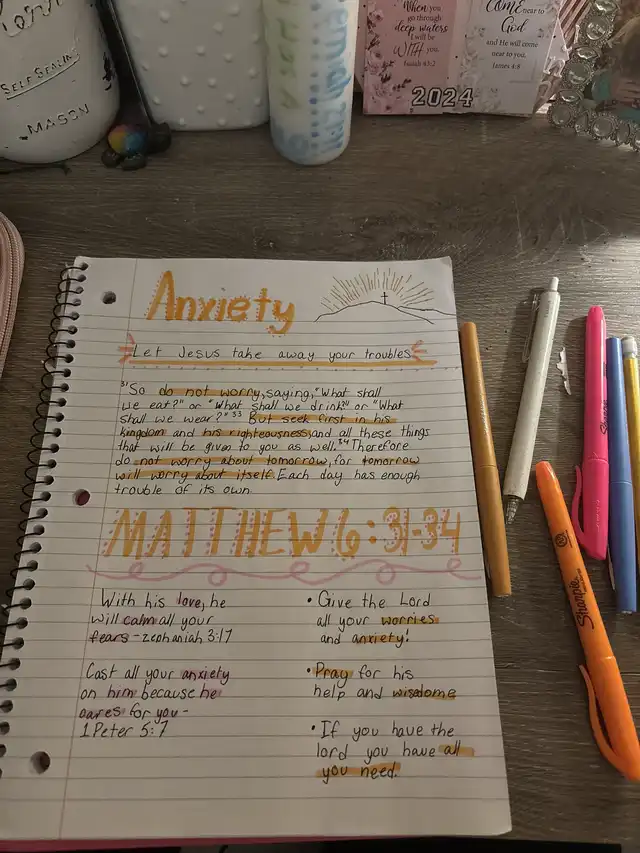 SELF SEALING
MASON
When you
go through
deep waters
I will be
WITH you.
Isaiah 43:2
COME near to
God
and He will come
near to you.
James 4:8
2024
Anxiety
Let Jesus take away your troubles
31 So do not worry, saying, "What shall
we eat?" or "What shall we drink" or "What
shall we wear?" 33 But seek first in his
kingdom and his righteousness, and all these things
that will be given to you as well. 34 Therefore
do not worry about tomorrow, for tomorrow
will worry about itself. Each day has enough
trouble of its own.
MATTHEW 6:31-34
With his love, he
will calm all your
fears - zephaniah 3:17
Cast all your anxiety
on him because he
cares for you -
1 Peter 5:7
• Give the Lord
all your worries
and anxiety!
• Pray for his
help and wisdome
• If you have the
lord you have all
you need.
Sharpie
Sharpie